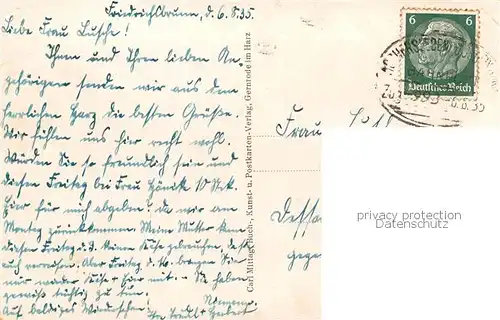 Friedrichsbrunn, d. 6.8.35.
Liebe Frau Lusche!
Ihnen und Ihren lieben An-
gehörigen senden wir aus dem
herrlichen Harz die besten Grüße.
Wir fühlen uns hier recht wohl.
Würden Sie so freundlich sein und
diesen Freitag bei Frau 10 Stck.
für mich abgeben? da wir am
Montag zurückkommen. Meine Mutter kann
diesen Freitag d. 9. keine gebrauchen, da
auch verreisen. Aber Freitag, d. 16. bringen Sie
mir wieder Käse + Eier mit. – Sie haben
gewiß tüchtig zu tun.
Auf baldiges Wiedersehen!
Ihre Trudl + Herbert
Carl Mittag, Buch-, Kunst- u. Postkarten-Verlag, Gernrode im Harz
Frau
Dessa
gege
6 6
Deutsches Reich
privacy protection
Datenschutz